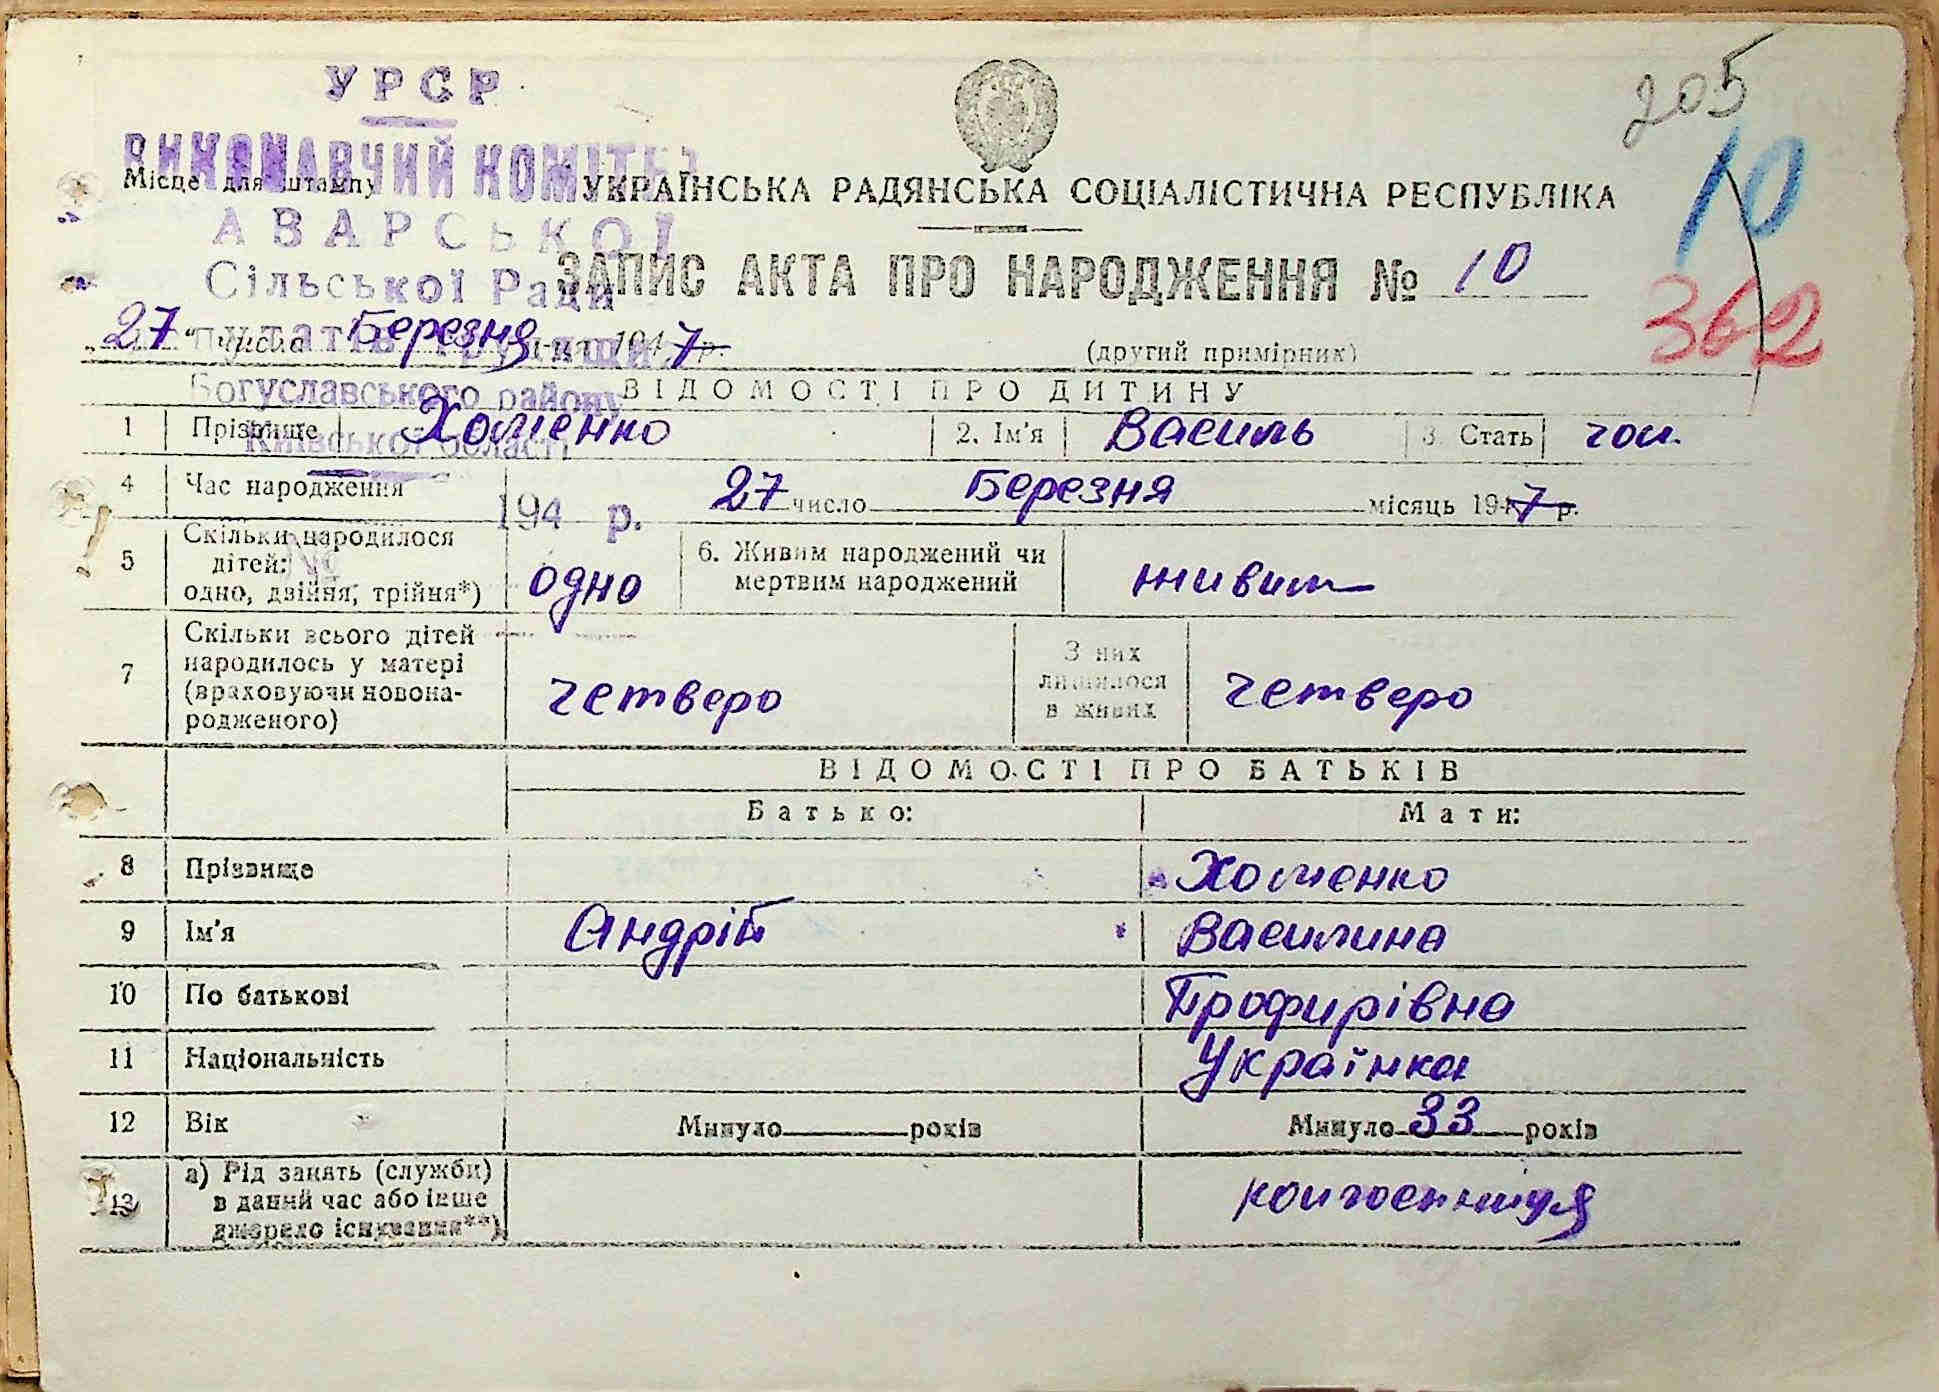 205
УРСР
ВИКОНАВЧИЙ КОМІТЕТ
10
Місце для штампу
УКРАЇНСЬКА РАДЯНСЬКА СОЦІАЛІСТИЧНА РЕСПУБЛІКА
АВАРСЬКОЇ
Сільської Ради
ЗАПИС АКТА ПРО НАРОДЖЕННЯ № 10
362
„27“ числа Березня 1947 р.
(другий примірник)
Богуславського району
ВІДОМОСТІ ПРО ДИТИНУ
Київської області
1 Прізвище Хоменко 2. Ім'я Василь 3. Стать чол.
4 Час народження 27 число Березня місяць 1947 р.
194 р.
№
5 Скільки народилося дітей: одно, двійня, трійня*) одно 6. Живим народжений чи мертвим народжений живим
7 Скільки всього дітей народилось у матері (враховуючи новонародженого) четверо З них лишилося в живих четверо
ВІДОМОСТІ ПРО БАТЬКІВ
Батько: Мати:
8 Прізвище Хоменко
9 Ім'я Андрій Василина
10 По батькові Профирівна
11 Національність Українка
12 Вік Минуло років Минуло 33 років
13 а) Рід занять (служби) в даний час або інше джерело існування**)